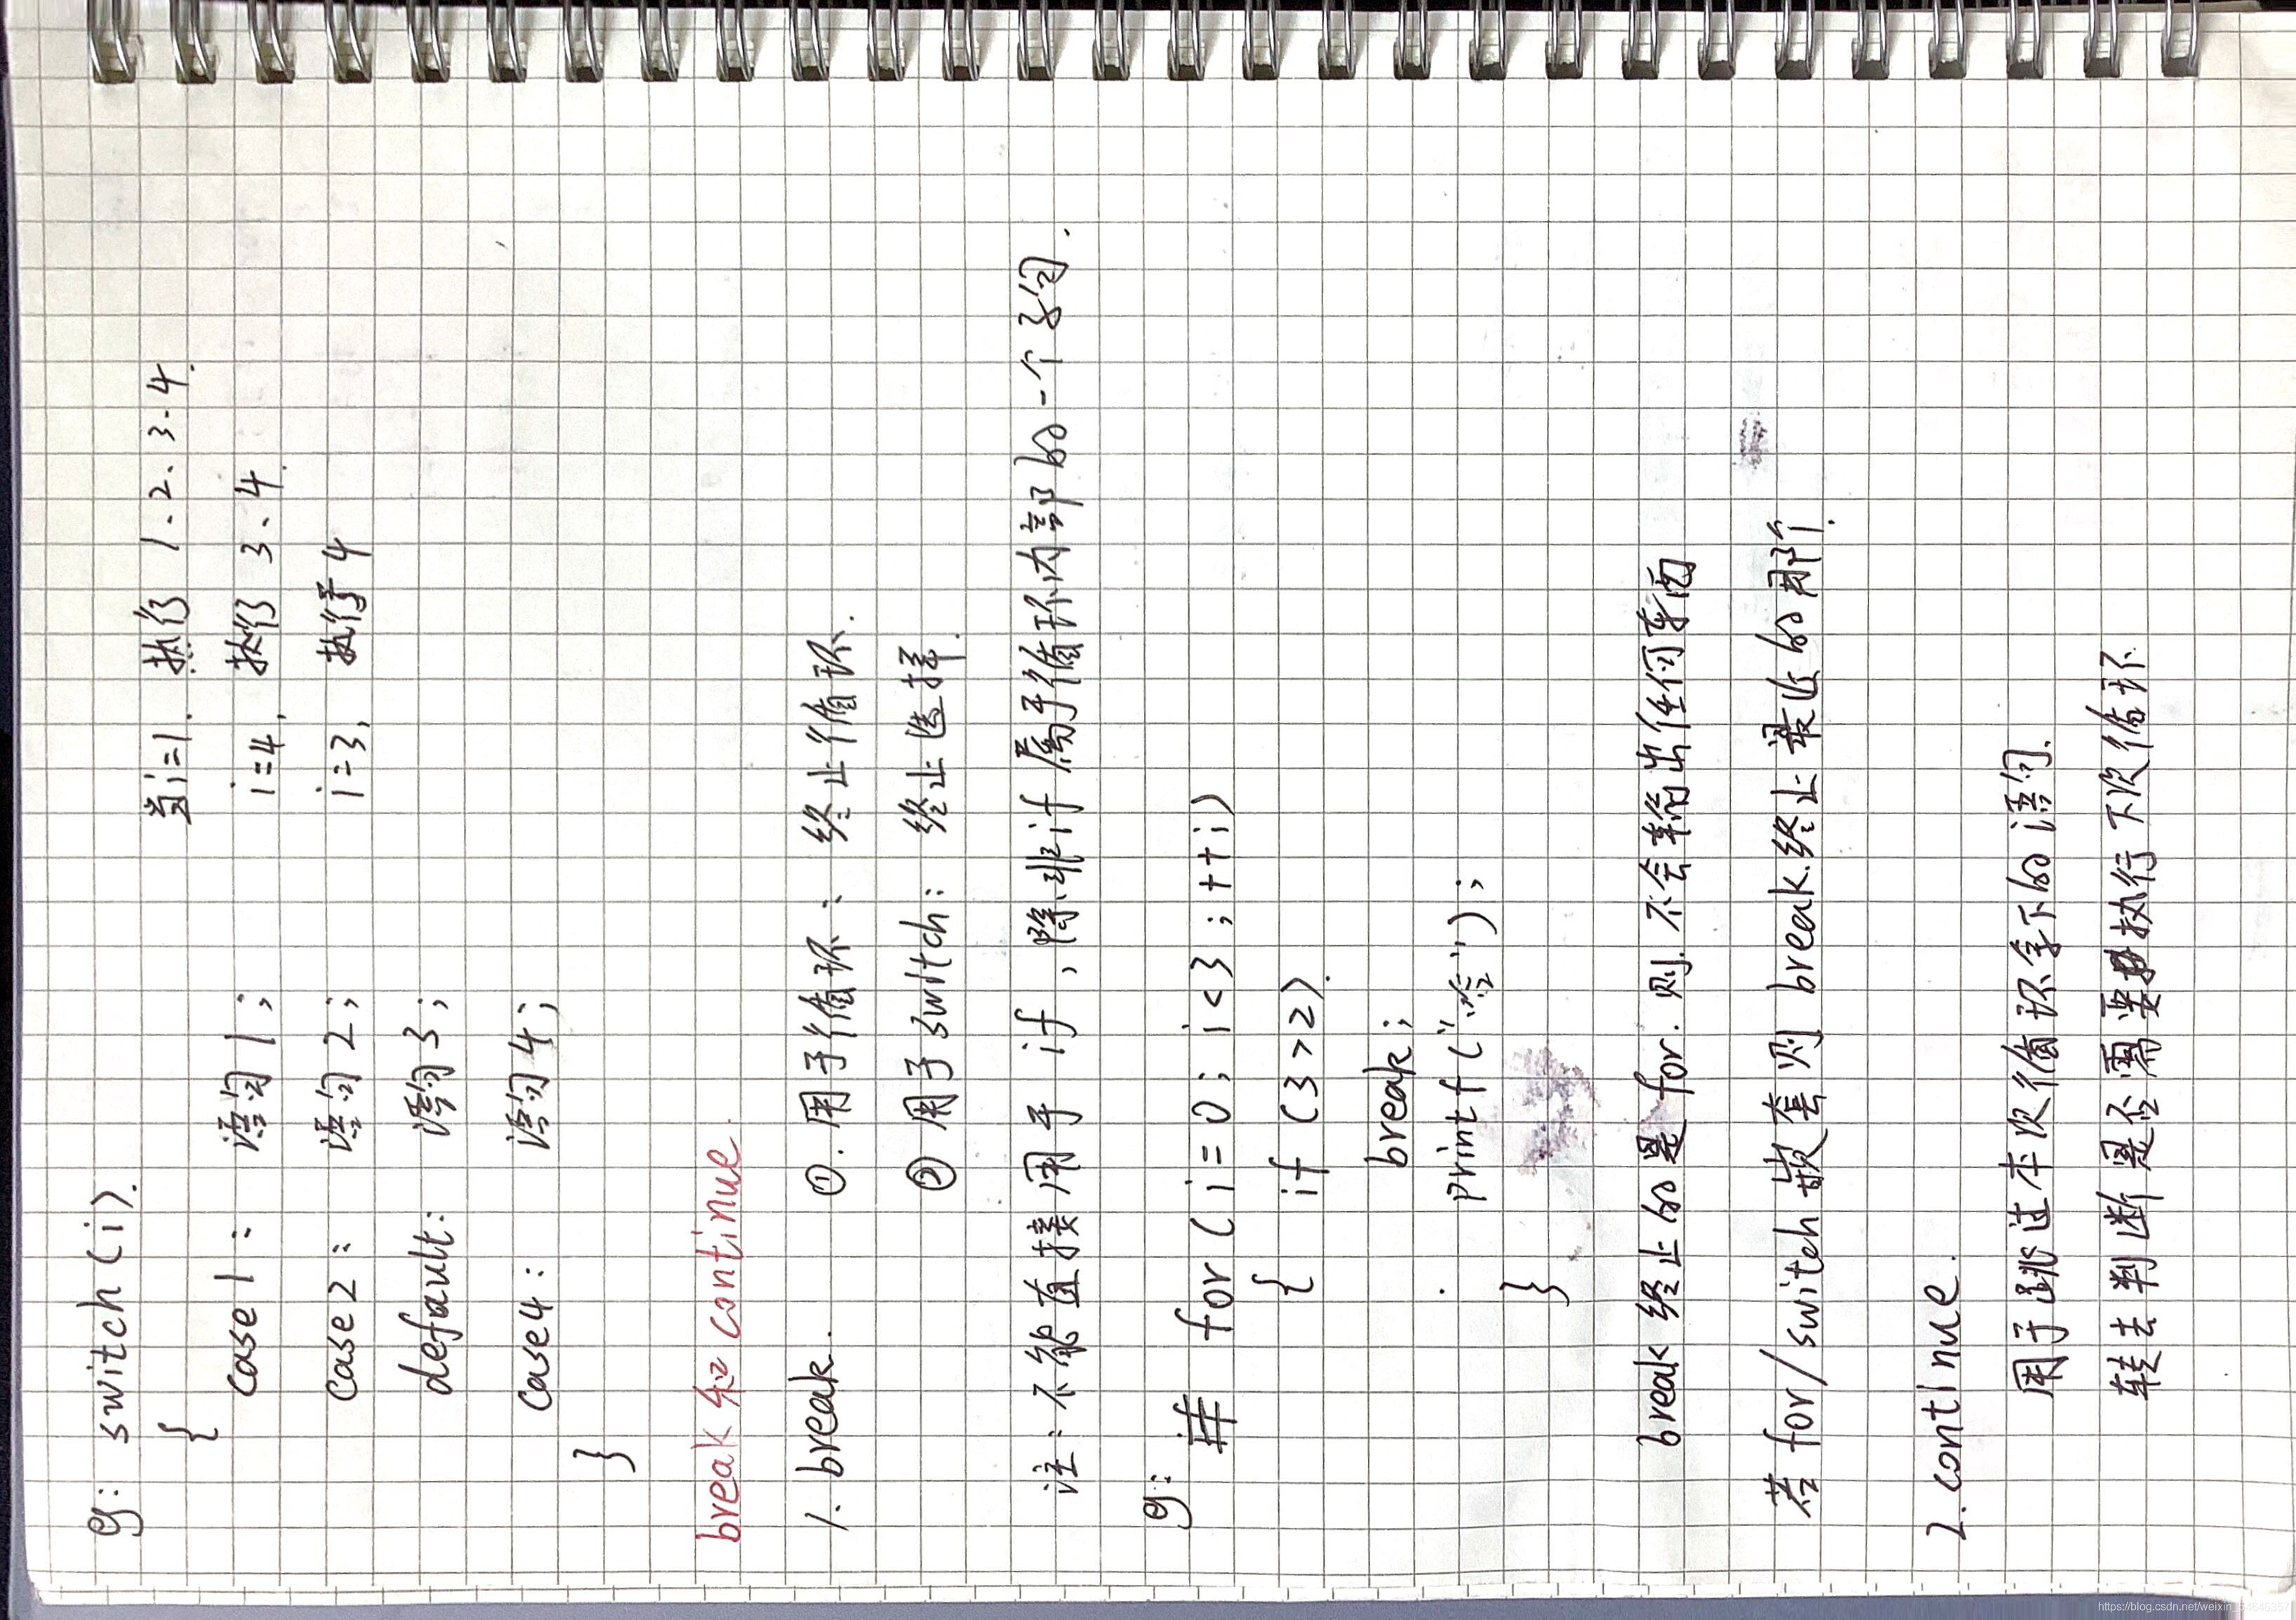 eg: switch(i).
{ 当i=1. 执行 1.2.3.4.
case1: 语句1; i=4, 执行 3.4.
case2: 语句2; i=3, 执行 4
default: 语句3;
case4: 语句4;
}
break 和 continue.
1. break. ①. 用于循环: 终止循环.
② 用于switch: 终止选择.
注: 不能直接用于 if, 除非if 属于循环内部的一个子句.
eg: for(i=0; i<3; ++i)
{ if (3>2).
break;
printf("");
}
break 终止的是 for. 则. 不会输出任何东西
若 for/switch 嵌套 则 break.终止最近的那个.
2. continue.
用于跳过本次循环余下的语句.
转去判断是否需要执行下次循环
https://blog.csdn.net/weixin_